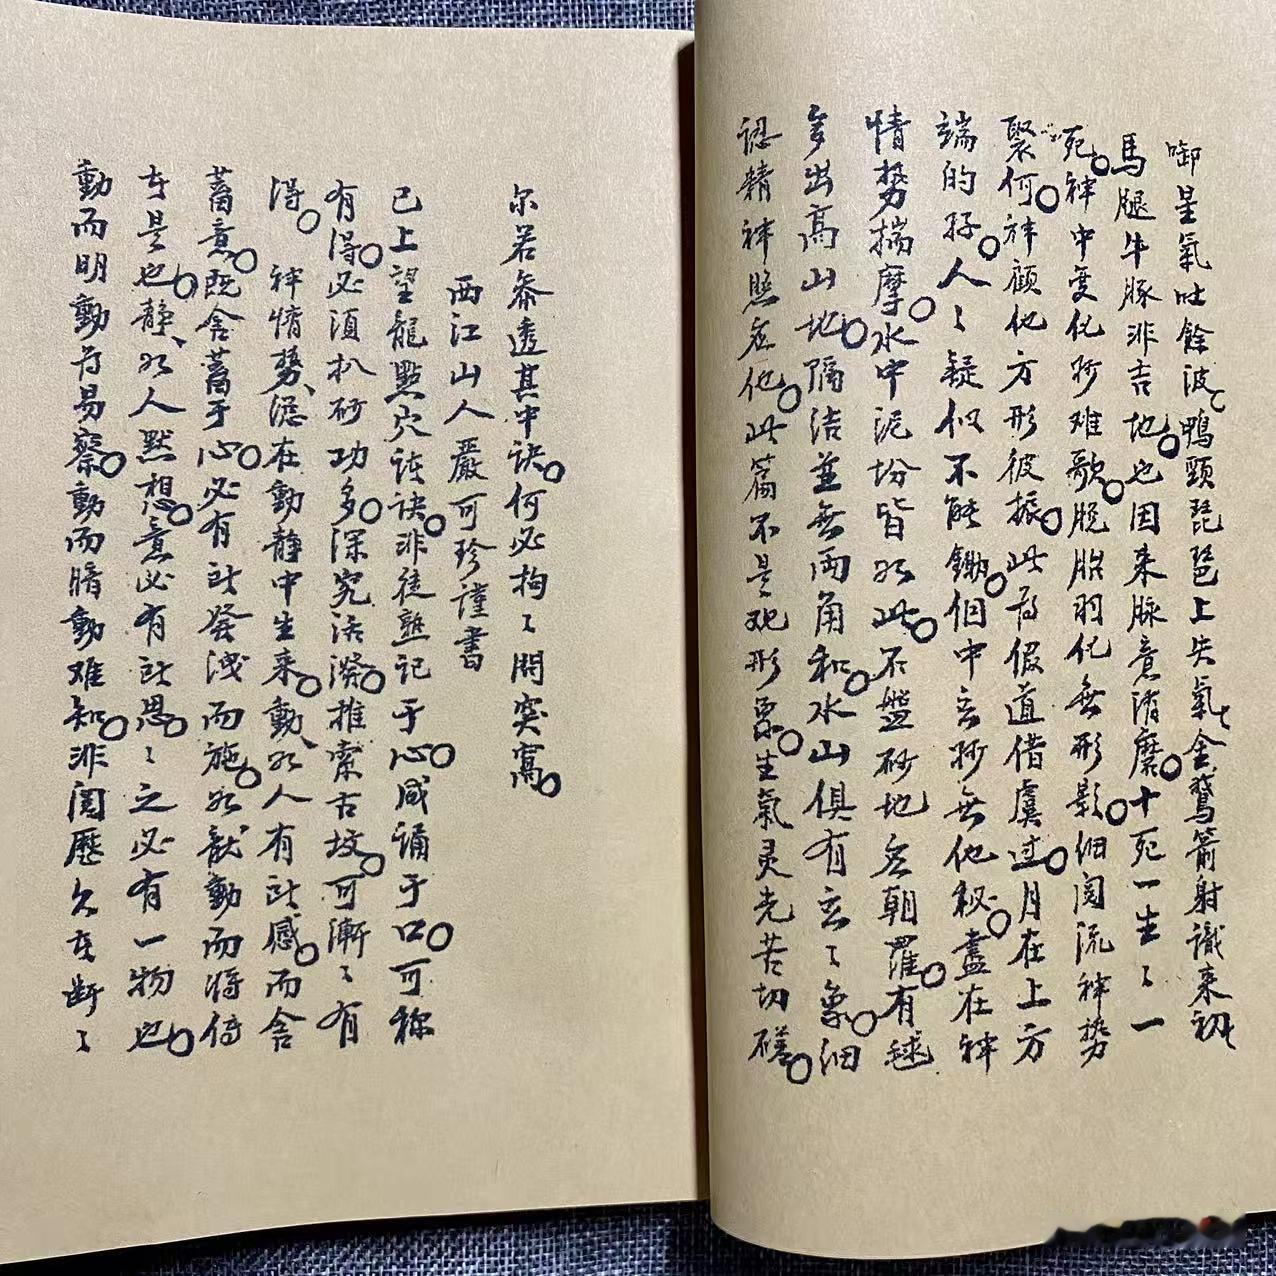 啣星氣吐餘波鴨頸琵琶上失氣金鵞箭射識來初
馬腿牛豚非吉地也因來脉意消磨十死一生〻一
死神中变化妙难歌脱胎羽化無形影細阅流神势
聚何神顧他方形彼振此為假道借虞过月在上方
端的好人〻疑似不能鋤個中玄妙無他秘盡在神
情势揣摩水中泥坋皆如此石盤砂地忌朝羅有毬
多出高山地隔洁並無两角和水山俱有玄〻象細
認精神照在他此篇不是观形象生氣灵光苦切磋
尔若叅透其中诀何必拘〻問突窩
西江山人嚴可珍謹書
已上望龍點穴诗诀非徒熟记于心咸诵于口可称
有得必須扒砂功多深究活潑推索古坟可漸〻有
得神情势意在動静中生來動如人有所感而含
蓄意既含蓄于心必有所發洩而施如獸動而將侍
者是也静如人默想意必有所思〻之必有一物也
動而明動为易察動而暗動难知非阅歷久者断〻